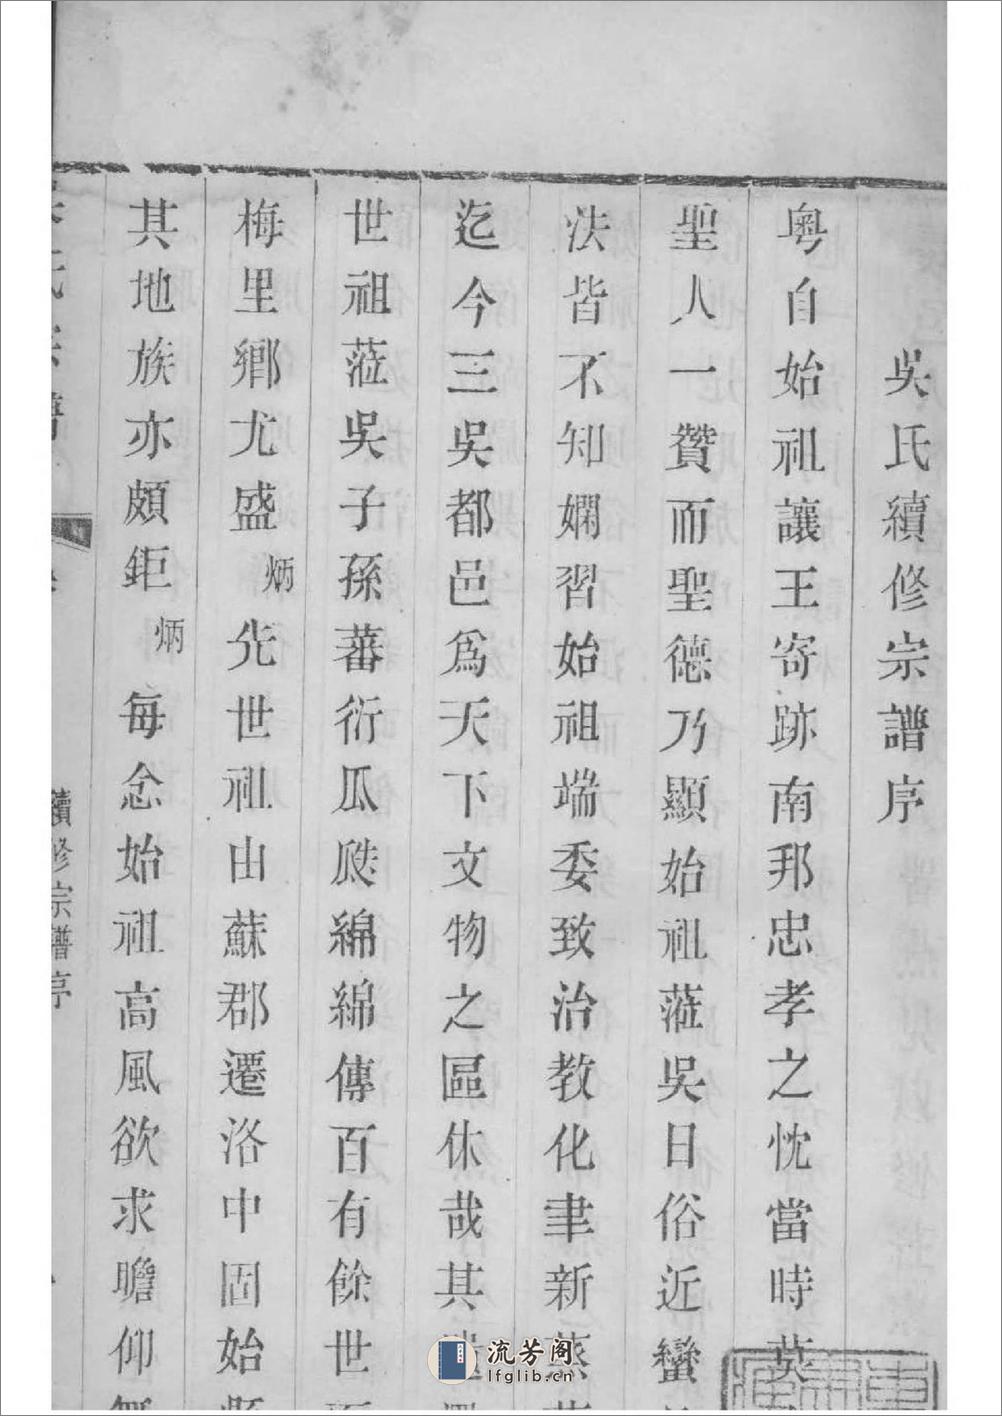 吳氏續修宗譜序
粵自始祖讓王寄跡南邦忠孝之忱當時莫
聖人一贊而聖德乃顯始祖蒞吳日俗近蠻
法皆不知嫻習始祖端委致治教化聿新蒸
迄今三吳都邑爲天下文物之區休哉其
世祖蒞吳子孫蕃衍瓜瓞綿綿傳百有餘世
梅里鄉尤盛炳先世祖由蘇郡遷洛中固始
其地族亦頗鉅炳每念始祖高風欲求瞻仰
續修宗譜序
流芳阁
lfglib.cn